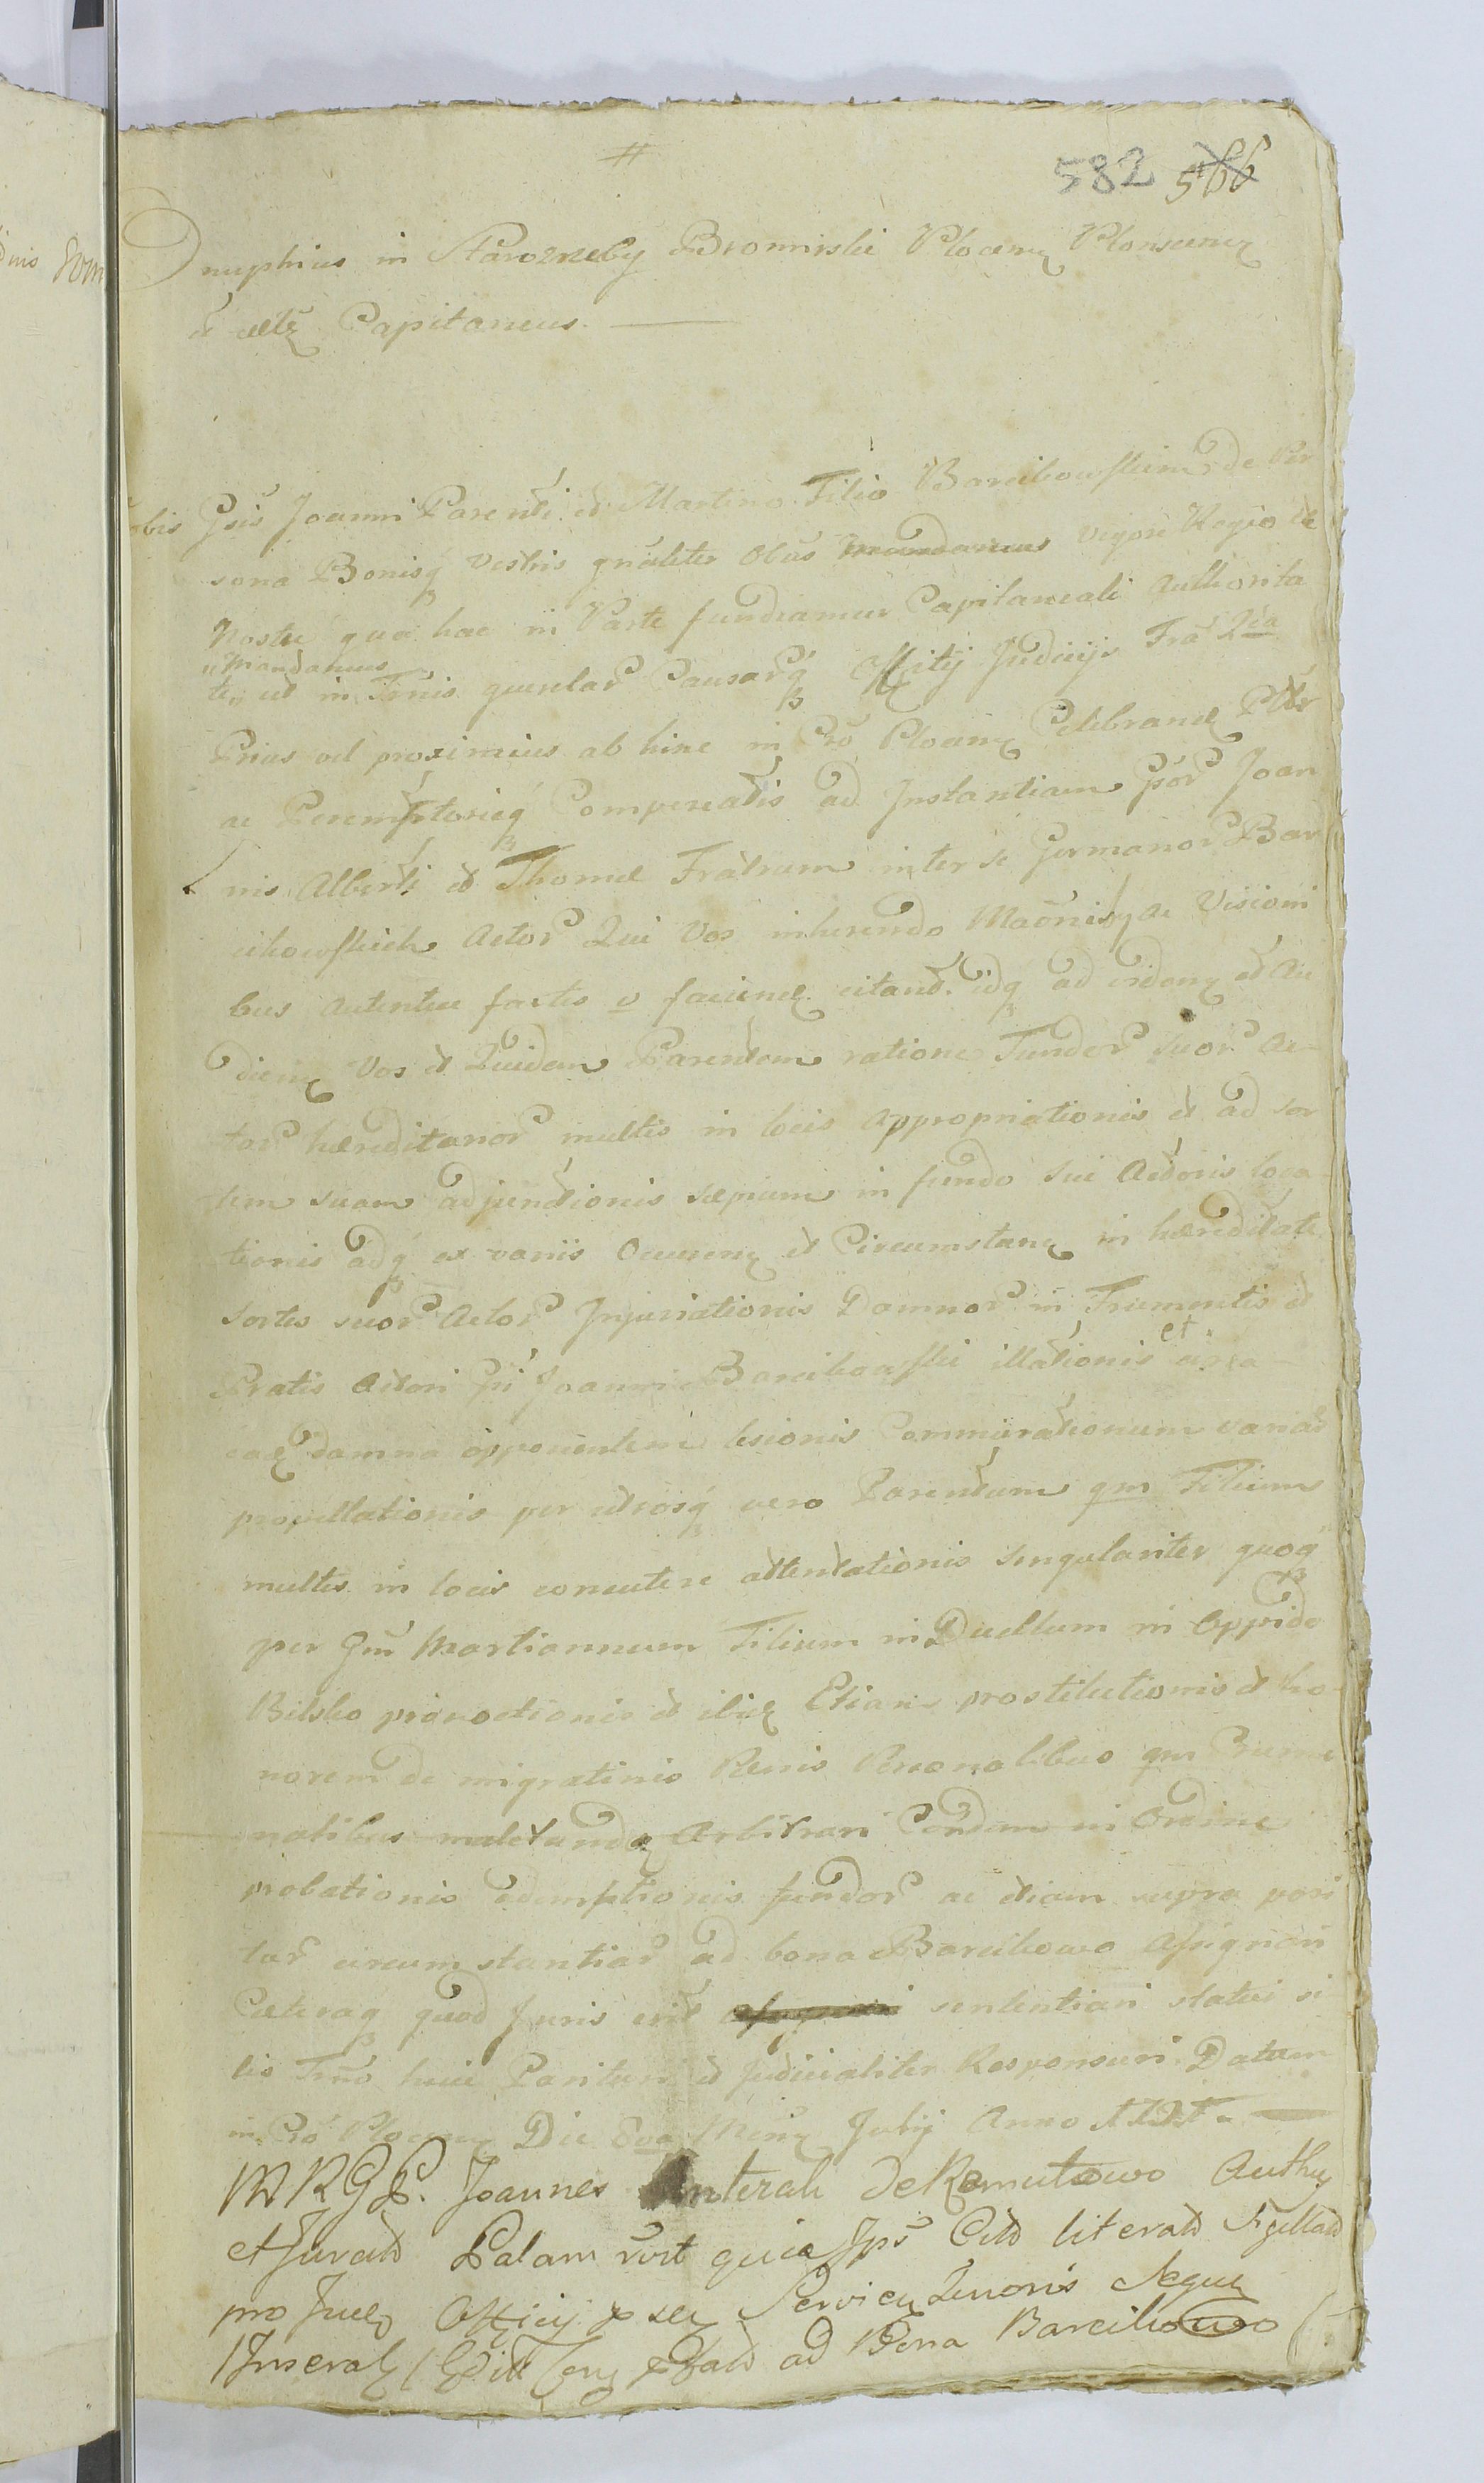 #
582 566
Onuphius in Starozreby Bromirski Plocens Plonscens
et cetr Capitaneus.
obis Gsis Joanni Parenti et Martino Filio Barcikowskim de Per
sona Bonisq vestris gnaliter Obus mandamus vigore Regio et
Nostra qua hac in Parte fundiamur Capitaneali Authorita
mandamus
te ut in Trnis querelar Causarq Officij Judicijs Fra 2da
Prius vel proximius ab hinc in Cro Plocens Celebrand Pltr
ac Peremptorieq Compereatis ad Instantiam Gsor Joan
nis Alberti et Thomæ Fratrum inter se Germanor Bar
cikowskich Actor Qui Vos inherendo Maonisq ac Visioni
bus Autentice factis v faciend citant idq ad videnq et Au
diend Vos et Quidem Parentem ratione Fundor suor Ac
tor hæreditarior multis in locis appropriationis et ad sor
tem suam adjunctionis sæpium in fundo sui Actoris loca
tionis adq ex variis Occurens et Circumstans in hæreditate
sortes suor Actor Injuriationis Damnor in Frumentis et
Pratis Actori Gsi Joanni Barcikowski illationis et circa
eaq damna opponentem lesionis Comminationum variar
propullationis per utrosq vero Parentum qm Filium
multis in locis concutere attentationis singulariter quoq
per Gm Martiannum Filium in Duellum in Oppido
Bilsko provoctionis et ibiq Etiam prostitutionis et ho
norem de migratinis Penis Personalibus qm Crume
nalibus mulctandos Arbitrari Condem in Ordine
probationis ademptionis fundor ac etiam supra posi
tar circumstantiar ad bona Barcikowo Assignari
Cæteraq quod Juris erit sententiari statui si
tis Trno huic Parituri et Judicialiter Responsuri Datum
in Cro Plocens Die 8va Mens Julij Anno 1787
MRGP. Joannes de Romutowo Authus
et Jurats Palam rcrt quia Jps Citt literats Sigillats
pro Juds Officij Tenoris Sequ
Inserat ad Bona Barcikowo